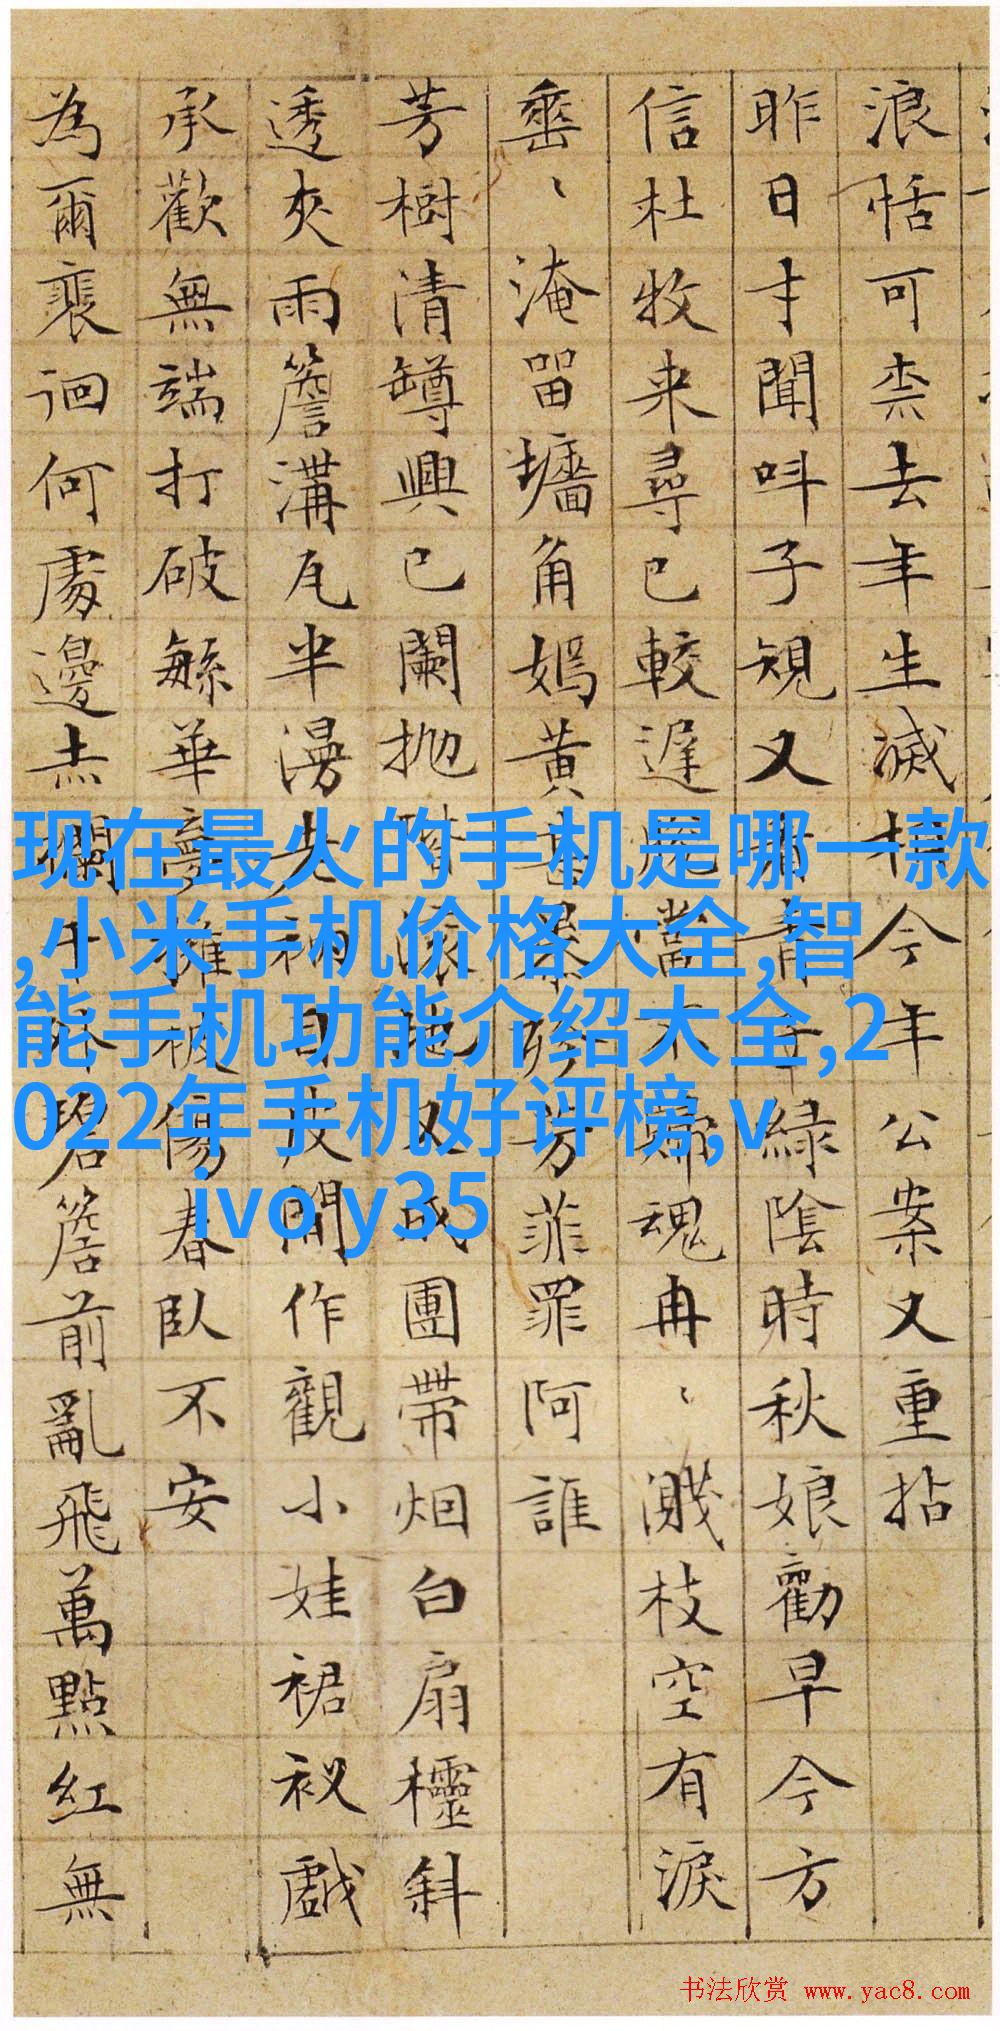 浪恬可柰去年生滅相今年公案又重拈
昨日才聞呌子規又青子綠陰時秋娘勸早今方
信杜牧来尋已較遲當不歸魂冉、濺枝空有淚
垂、淹留墻角嫣黃甚累殢芳菲罪阿誰
芳樹清罇興已闌抛滚地又成團帶烟白扇欞斜
透夾雨簷溝瓦半漫失衲自皮間作觀小娃裙衩戲
承歡無端打破繁華夢擁被傷春臥不安
為爾裴徊何處邊赤闌干外碧簷前亂飛萬點紅無
现在最火的手机是哪一款
,小米手机价格大全,智
能手机功能介绍大全,2
022年手机好评榜,v
ivo y35
书法欣赏 www.yac8.com